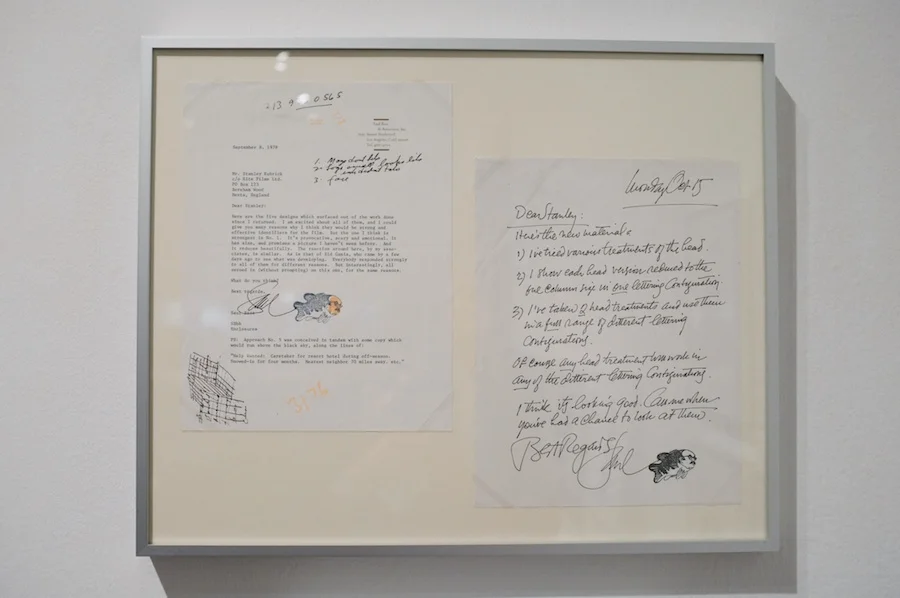 213 9 0565
Saul Bass
& Associates, Inc.
Los Angeles, California
September 6, 1979
1. Maze don't like
2. Logo small
3. face
Mr. Stanley Kubrick
c/o Hite Films Ltd.
PO Box 123
Boreham Wood
Herts, England
Dear Stanley:
Here are the five designs which surfaced out of the work done
since I returned. I am excited about all of them, and I could
give you many reasons why I think they would be strong and
effective identifiers for the film. But the one I think is
strongest is No. 1. It's provocative, scary and emotional. It
has size, and promises a picture I haven't seen before. And
it reduces beautifully. The reaction around here, by my asso-
ciates, is similar. As is that of Sid Ganis, who came by a few
days ago to see what was developing. Everybody responded strongly
to all of them for different reasons. But interestingly, all
zeroed in (without prompting) on this one, for the same reasons.
What do you think?
Best regards,
Saul
Saul Bass
Enclosures
PS: Approach No. 5 was conceived in tandem with some copy which
would run above the black art, along the lines of:
"Help Wanted: Caretaker for resort hotel during off-season.
Snowed-in for four months. Nearest neighbor 75 miles away. etc."
3176
Monday Oct 15
Dear Stanley:
Here's the new material
1) I've tried various treatments of the head.
2) I show each head version reduced to the
one column size in one lettering configuration
3) I've taken 2 head treatments and use them
in a full range of different lettering
configurations.
Of course any head treatment can work in
any of the different lettering configurations.
I think its looking good. Call me when
you've had a chance to look at them.
Best Regards
Saul